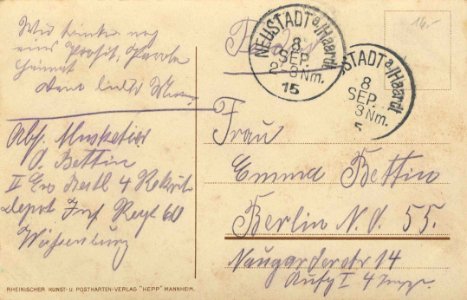 Wir trinken noch
eins Prosit, Parole
Heimat
Abs. Musketier
O. Bettin
II Ers Batl 4 Rekrut
depot Inf Regt 60
Weissenburg
RHEINISCHER KUNST- U. POSTKARTEN-VERLAG "HEPP" MANNHEIM.
NEUSTADT a/Haardt
8
SEP.
2-3Nm.
15
STADT a/Haardt
8
SEP.
3Nm.
Frau
Emma Bettin
Berlin N. O. 55.
Naugarderstr 14
Aufg I 4 Trepp.